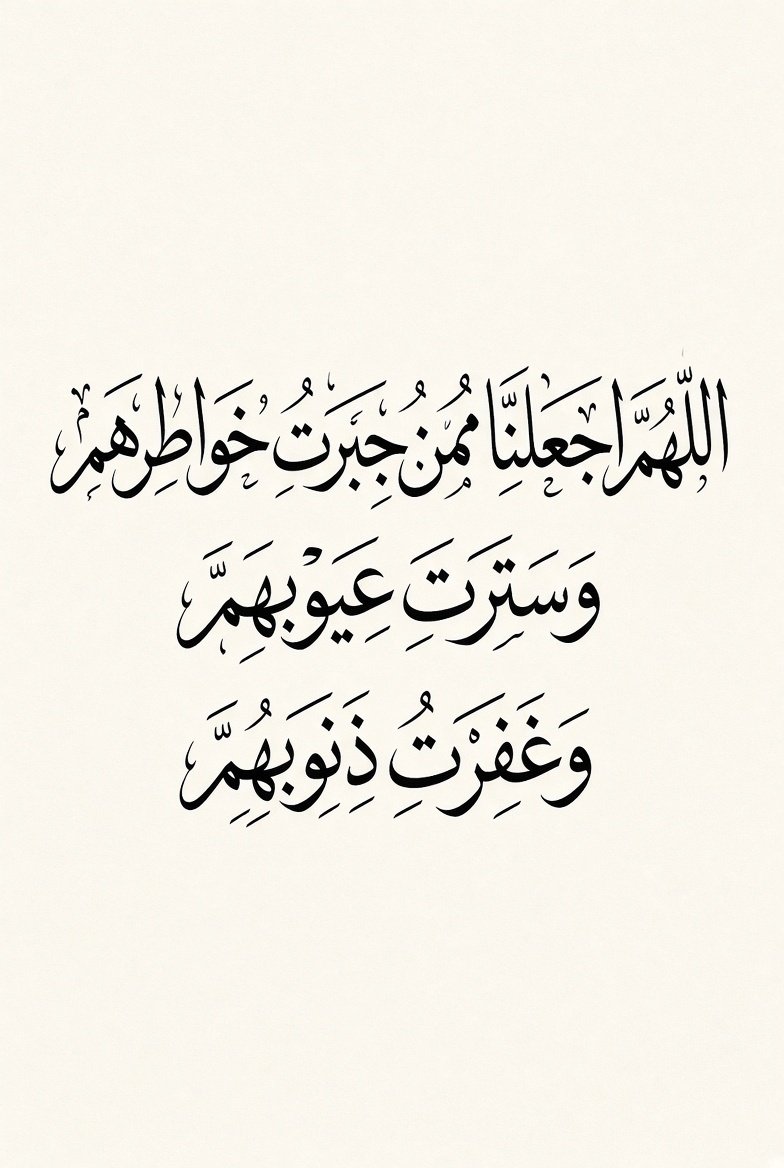 اللّهُمَّ اجَعَلنَِّا مُمنُ جِبَرتُِ خَواطِرهَمِ
وَسَتِرتَِ عِيَوْبِهَمَّ
وَغَفِرْتُِ ذَِنِوَبِهُِمَِّ